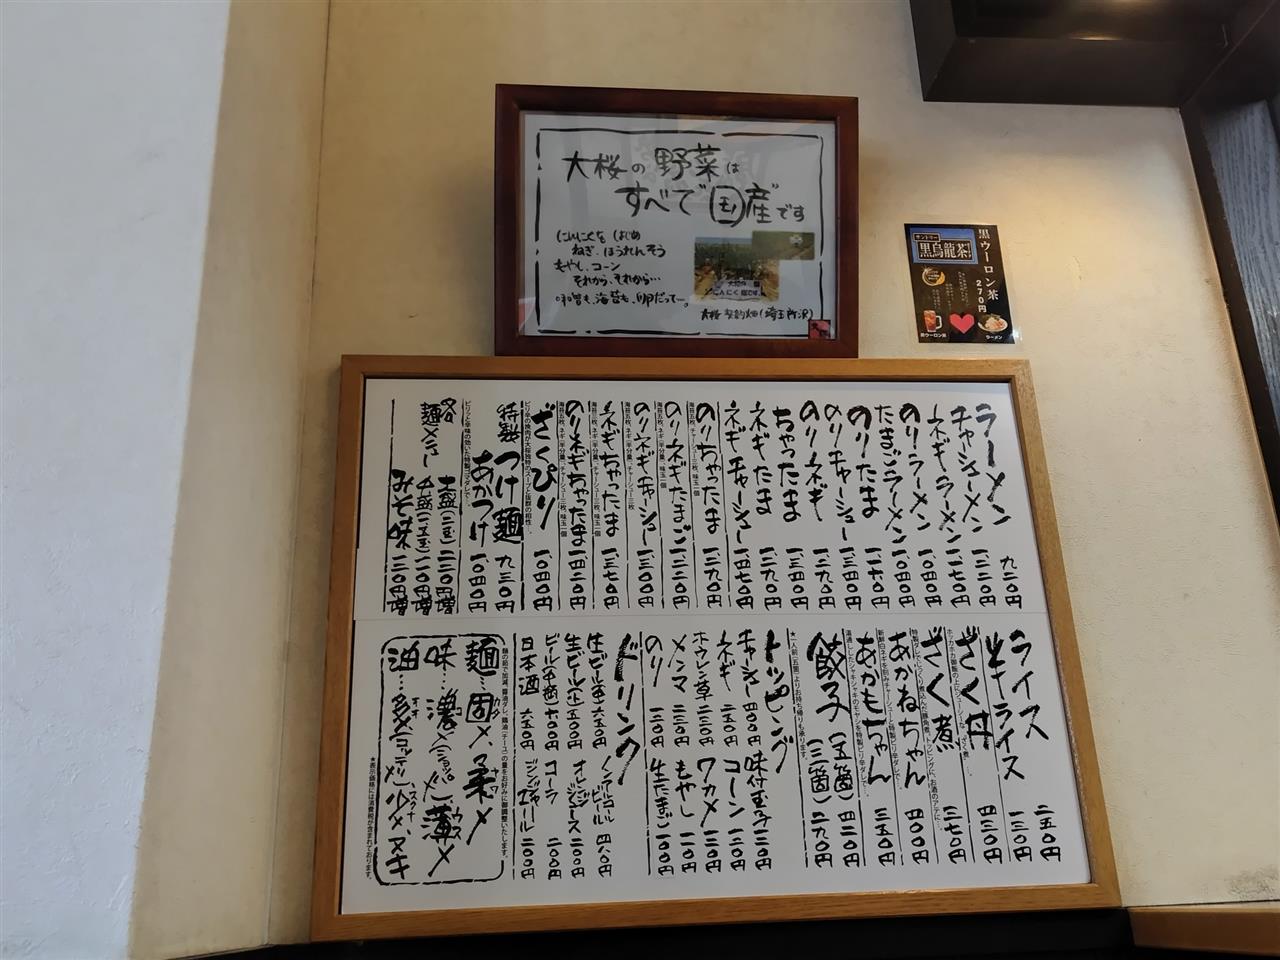 大桜の野菜は
すべて国産です
にんにくをはじめ
ねぎ、ほうれんそう
もやし、コーン
それから、それから…
味噌も、海苔も、卵だって—。
大桜 契約畑(埼玉所沢)
黒ウーロン茶
270円
サントリー
黒烏龍茶
黒ウーロン茶
ラーメン
ラーメン 九二〇円
チャーシューメン 一、三二〇円
ネギラーメン 一、一七〇円
のりラーメン 一、〇四〇円
たまごラーメン 一、〇四〇円
のりたまご
のりチャーシュー 一、三四〇円
のりネギ 一、二九〇円
ちゃったま 一、三四〇円
ネギたま 一、二九〇円
ネギチャーシュー 一、四七〇円
のりちゃったま 一、三九〇円
のりネギたまご
のりネギチャーシュー 一、三〇〇円
ネギちゃったま 一、三七〇円
のりネギちゃったま 一、四二〇円
ざくぴり 一、〇四〇円
特製 つけ麺 九三〇円
ピリッと辛味の効いた特製ゴマダレで…
あかつけ 一、〇四〇円
各麺メニュー
大盛(二玉) 二二〇円増
中盛(一・五玉) 一一〇円増
みそ味 一二〇円増
ライス 二五〇円
半ライス 一三〇円
ざく丼 四三〇円
ざく煮 三七〇円
あかねちゃん 四〇〇円
あかもちゃん 三五〇円
餃子(五箇) 四二〇円
(三箇) 二九〇円
★一人前(五箇)よりお持ち帰りも承ります。
トッピング
チャーシュー 四〇〇円
ネギ 二五〇円
ホウレン草 二三〇円
メンマ 二三〇円
のり 一二〇円
味付玉子 一二〇円
コーン 一二〇円
ワカメ 一二〇円
もやし 一一〇円
生たまご 一〇〇円
ドリンク
生ビール(中) 六五〇円
生ビール(小) 五〇〇円
ビール(中瓶) 七〇〇円
日本酒 六五〇円
ノンアルコールビール 四八〇円
オレンジジュース 二〇〇円
コーラ 二〇〇円
ジンジャエール 二〇〇円
麺の茹で加減、醤油ダレ、鶏油(チーユ)の量をお好みに御調整いたします。
麺…固メ、柔メ
味…濃メ(ショッパメ)、薄メ
油…多メ(コッテリ)、少メ、ヌキ
★表示価格には消費税が含まれております。